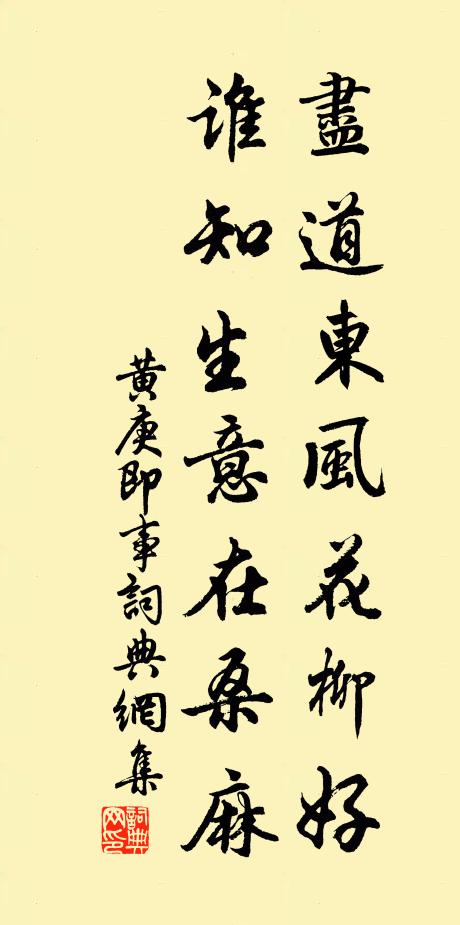 盡道東風花柳好
誰知生意在桑麻
黄庚即事詞典網集
詞典网印